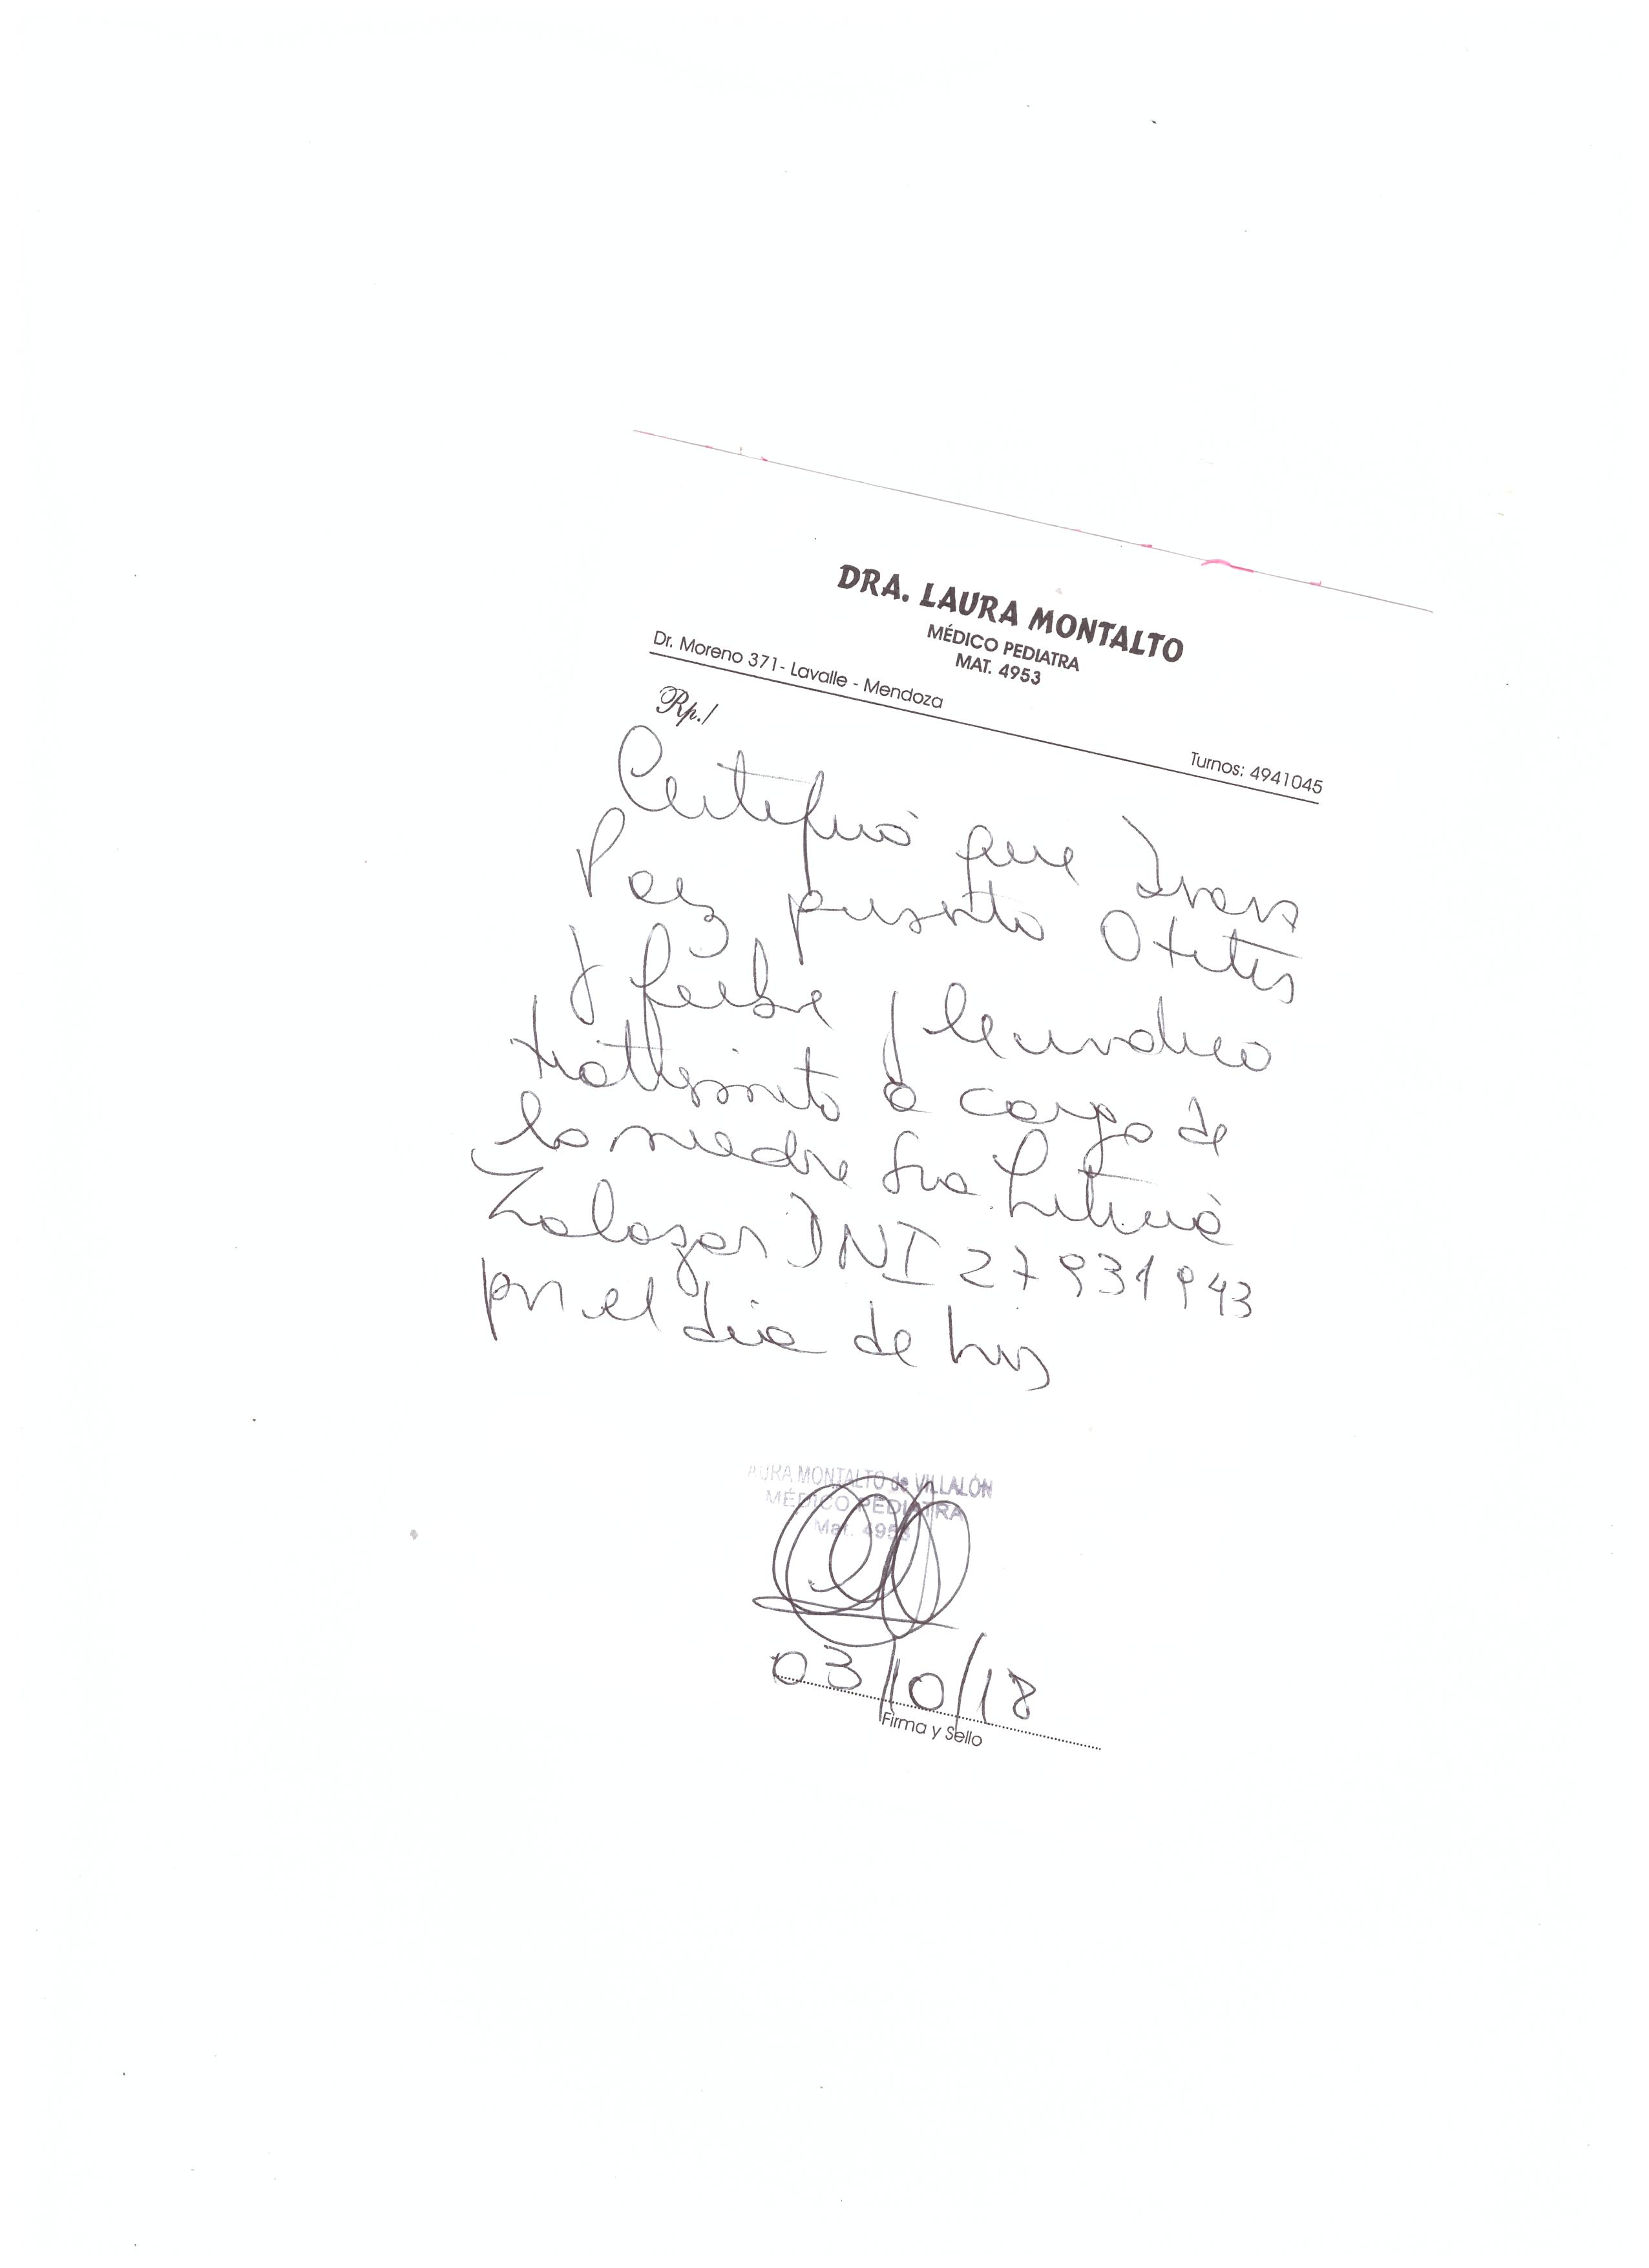 DRA. LAURA MONTALTO
MÉDICO PEDIATRA
MAT. 4953
Dr. Moreno 371 - Lavalle - Mendoza
Turnos: 4941045
Rp./
Certifico que Ivan
Paez presento Otitis
y fiebre, le indico
tratamiento a cargo de
la madre Sra. Leticia
Zalazar DNI 27931943
por el dia de hoy
AURA MONTALTO de VILLALÓN
MÉDICO PEDIATRA
Mat. 4953
03/10/18
Firma y Sello